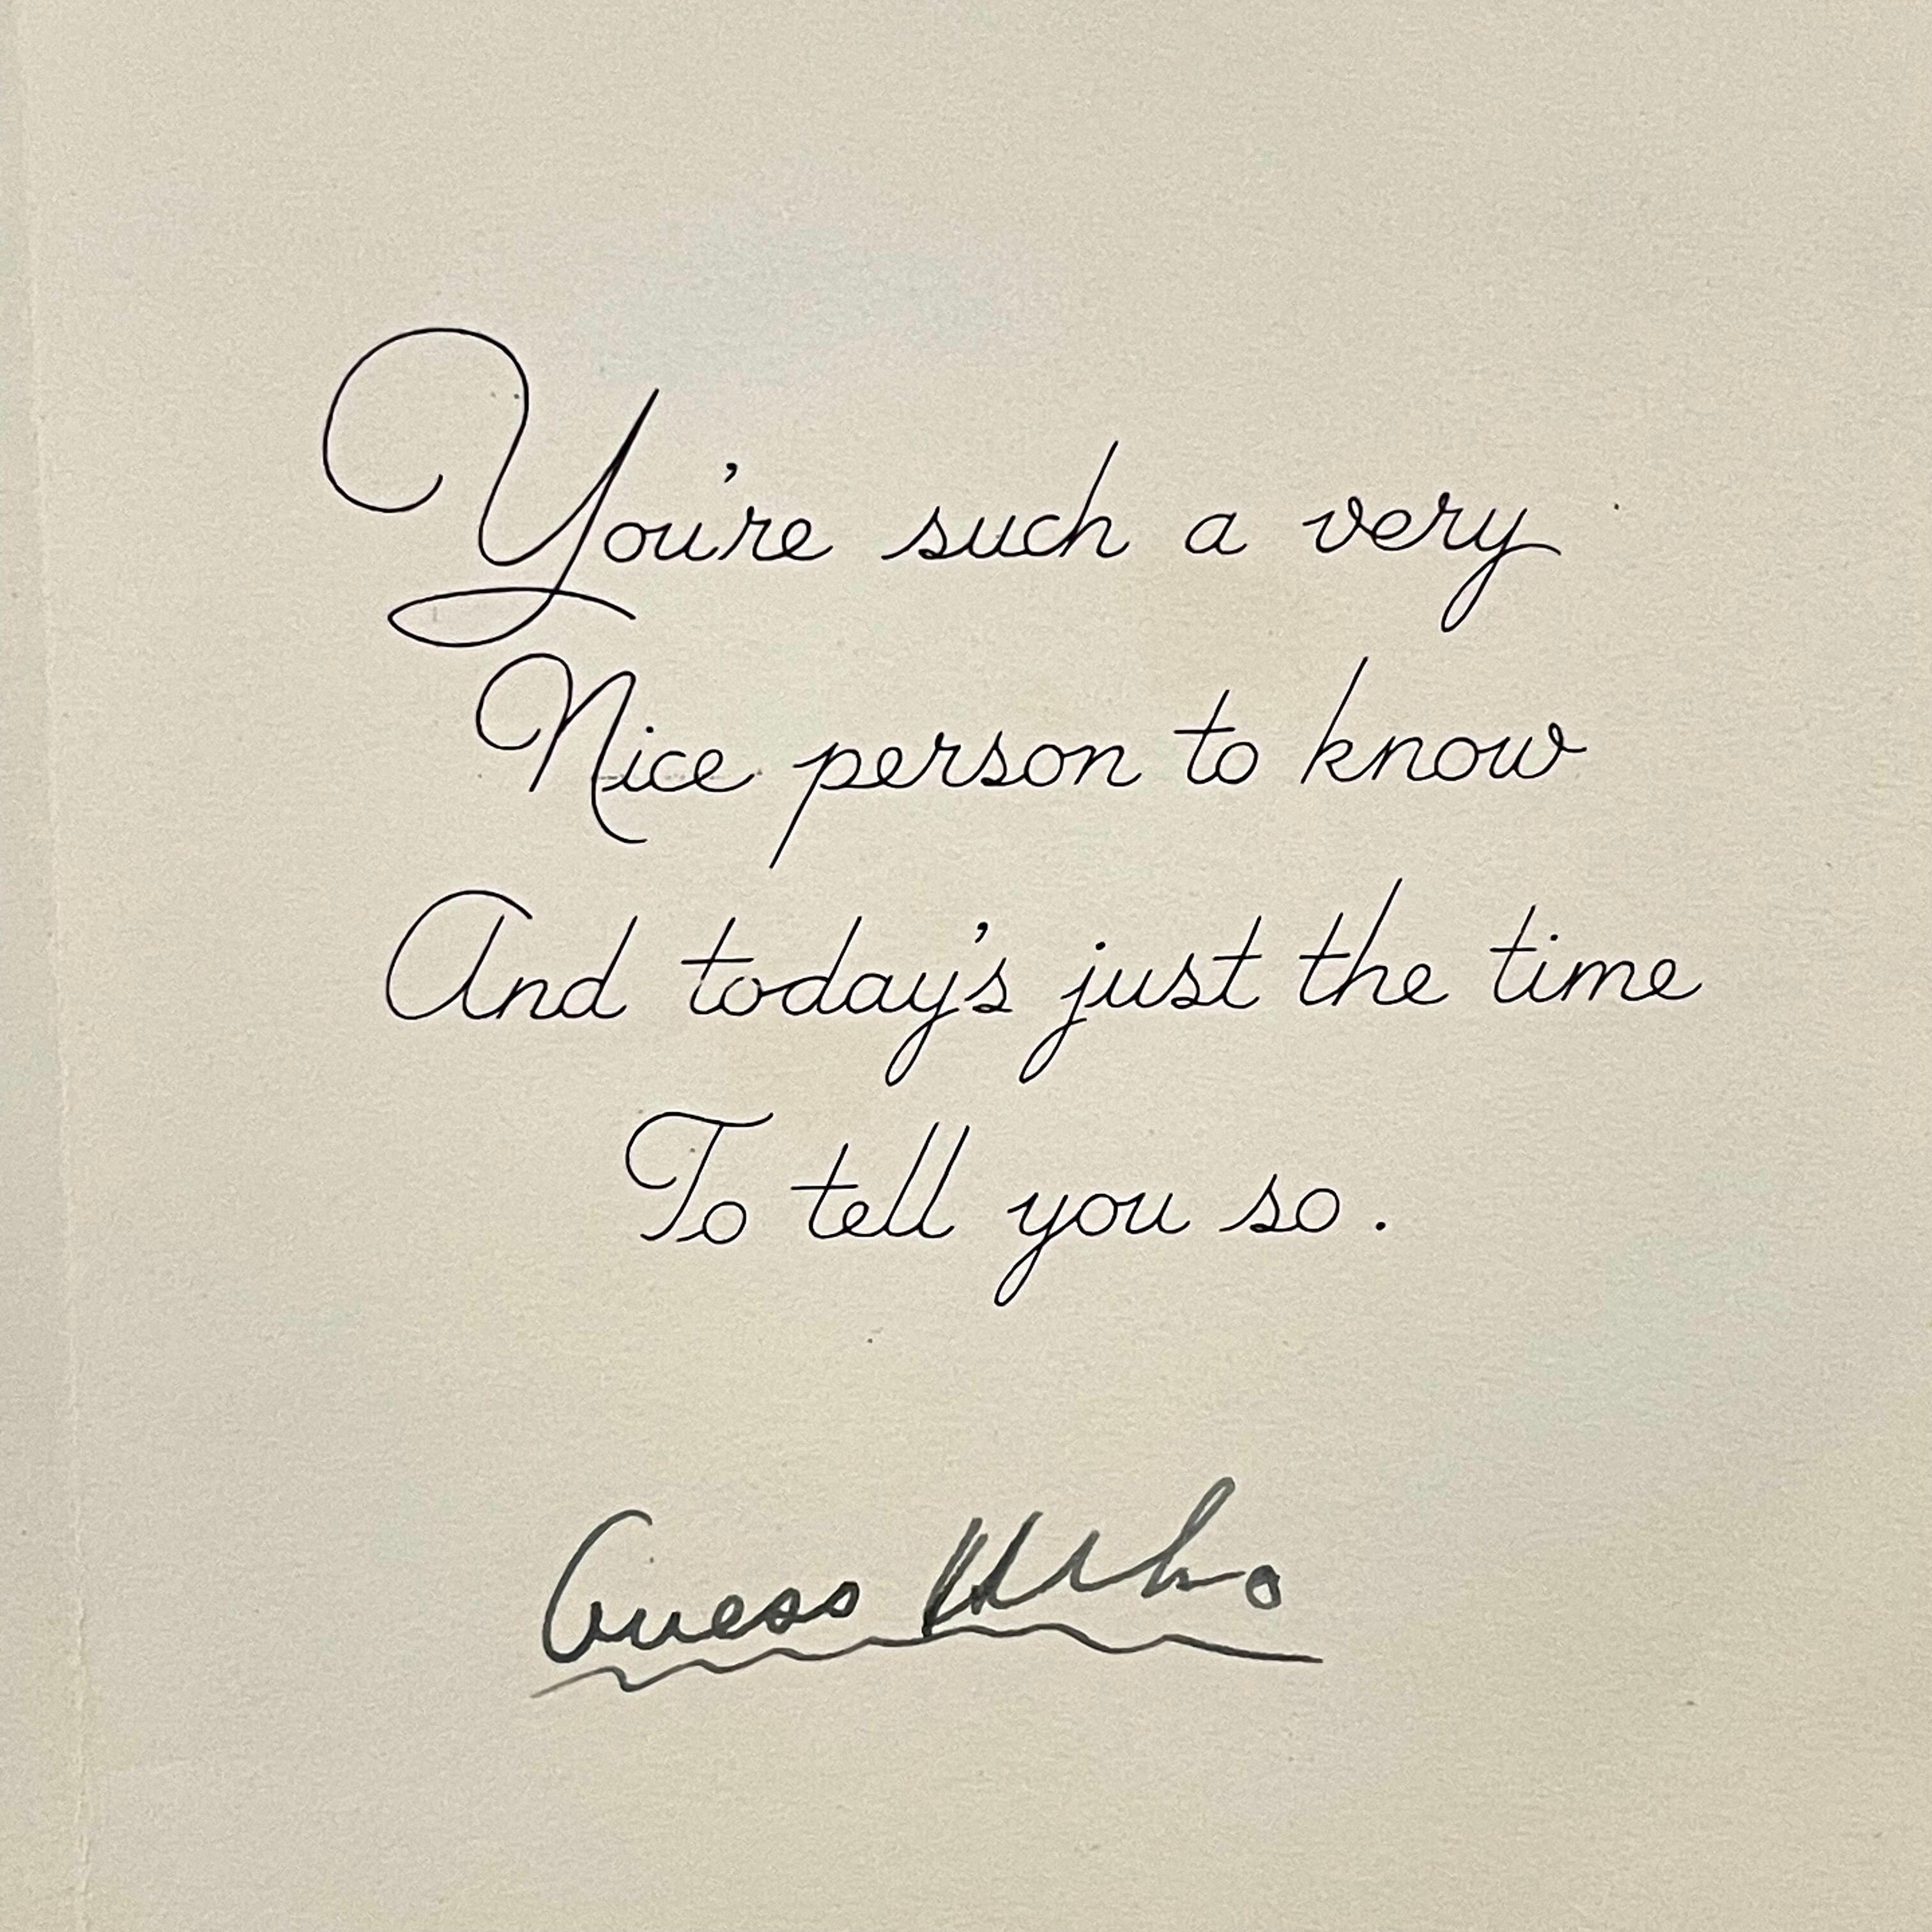 You're such a very
Nice person to know
And today's just the time
To tell you so.
Guess Who